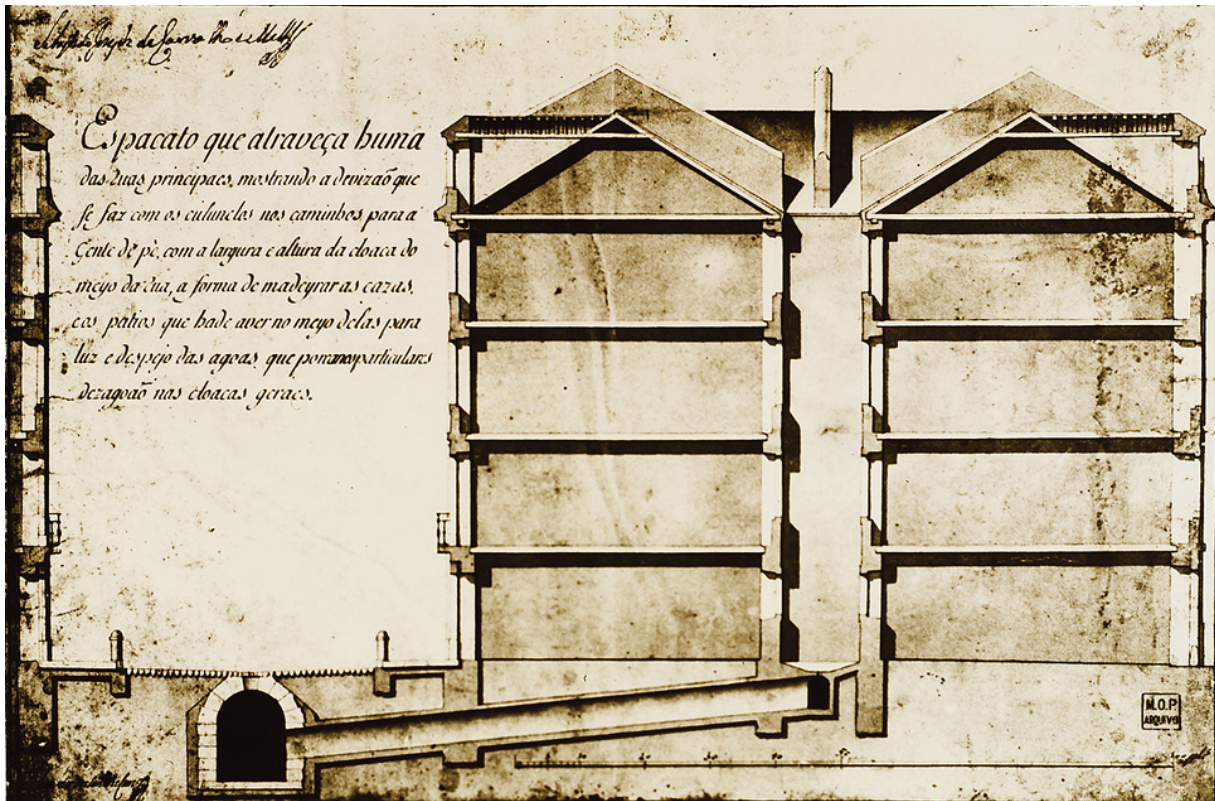 Espacato que atraveça huma
das Ruas principaes, mostrando a devizaõ que
se faz com os culunelos nos caminhos para a
Gente de pè, com a largura e altura da cloaca do
meyo da Rua, a forma de madeyrar as cazas,
e os patios que hade aver no meyo delas para
luz e despejo das agoas, que por canos particulares
dezagoaõ nas cloacas geraes.
M.O.P.
ARQUIVO